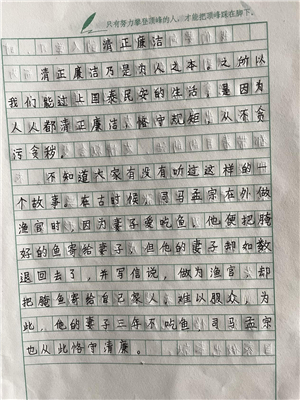 只有努力攀登顶峰的人，才能把顶峰踩在脚下。
清正廉洁
清正廉洁乃是为人之本。之所以
我们能过上国泰民安的生活，是因为
人人都清正廉洁、恪守规矩、从不贪
污贪秽。
不知道大家有没有听过这样的一
个故事。在古时候，司马孟宗在外做
渔官时，因为妻子爱吃鱼，他便把腌
好的鱼寄给妻子，但他的妻子却如数
退回去了，并写信说，做为渔官，却
把腌鱼寄给自己家人，难以服众，为
此，他的妻子三年不吃鱼，司马孟宗
也从此恪守清廉。